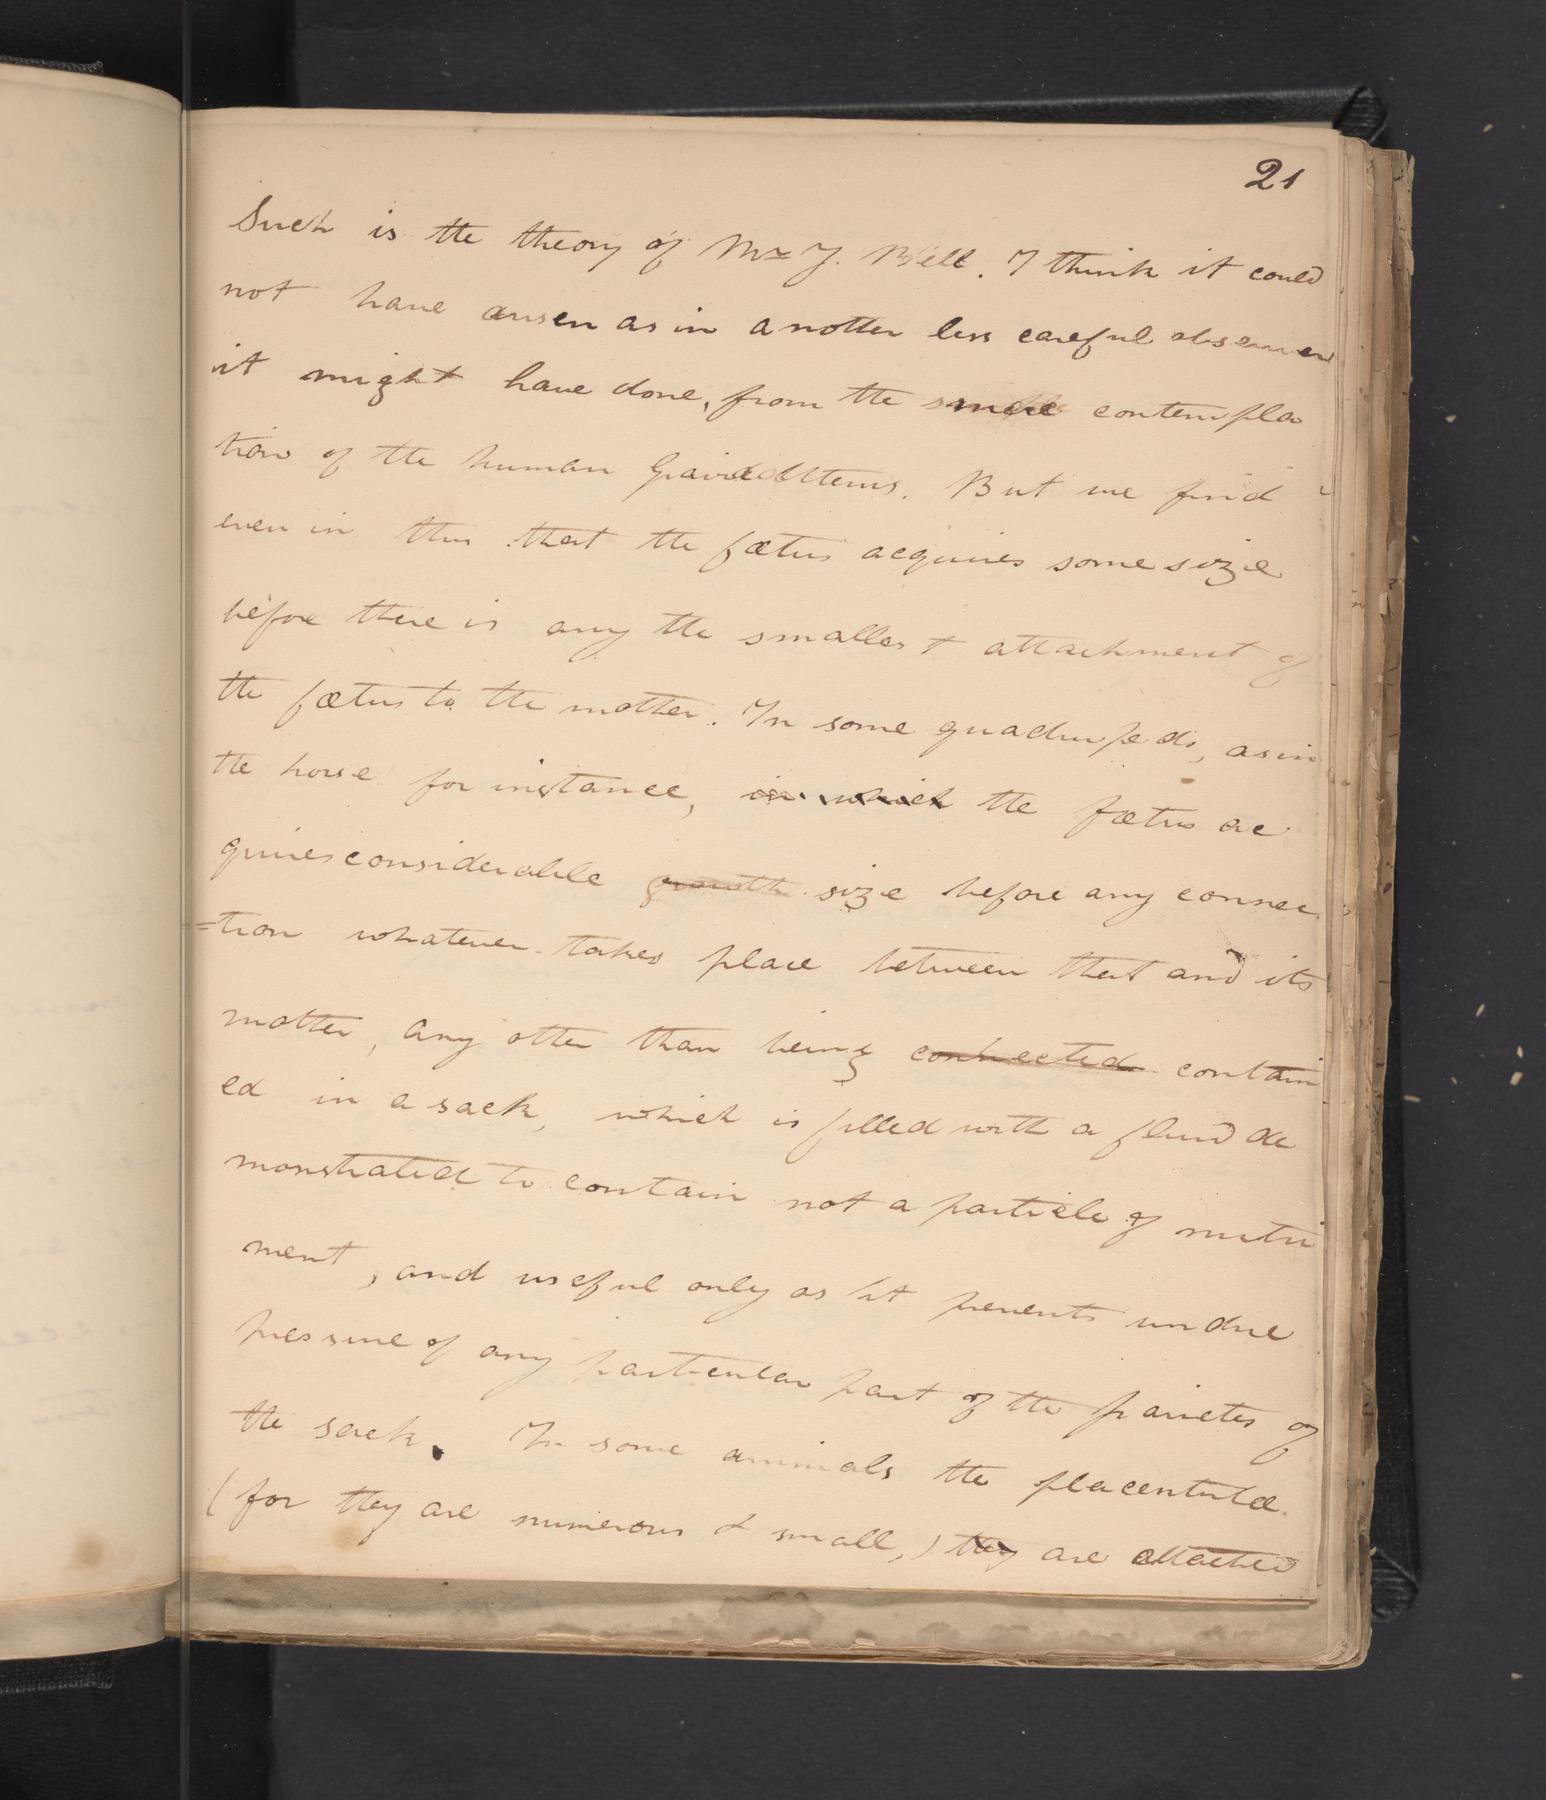 21
Such is the theory of Mr J. Bell. I think it could
not have arisen as in another less careful observer
it might have done, from the mere contempla
tion of the human Gravid Uterus. But we find
even in this that the fœtus acquires some size
before there is any the smallest attachment of
the fœtus to the mother. In some quadrupeds, as in
the horse for instance, in which the fœtus ac
quires considerable growth size before any connec
=tion whatever takes place between that and its
mother, any other than being connected contain
ed in a sack, which is filled with a fluid de
monstrated to contain not a particle of nutri
ment, and useful only as it prevents undue
pressure of any particular part of the parietes of
the sack. In some animals the placentulæ
(for they are numerous & small,) they are attached